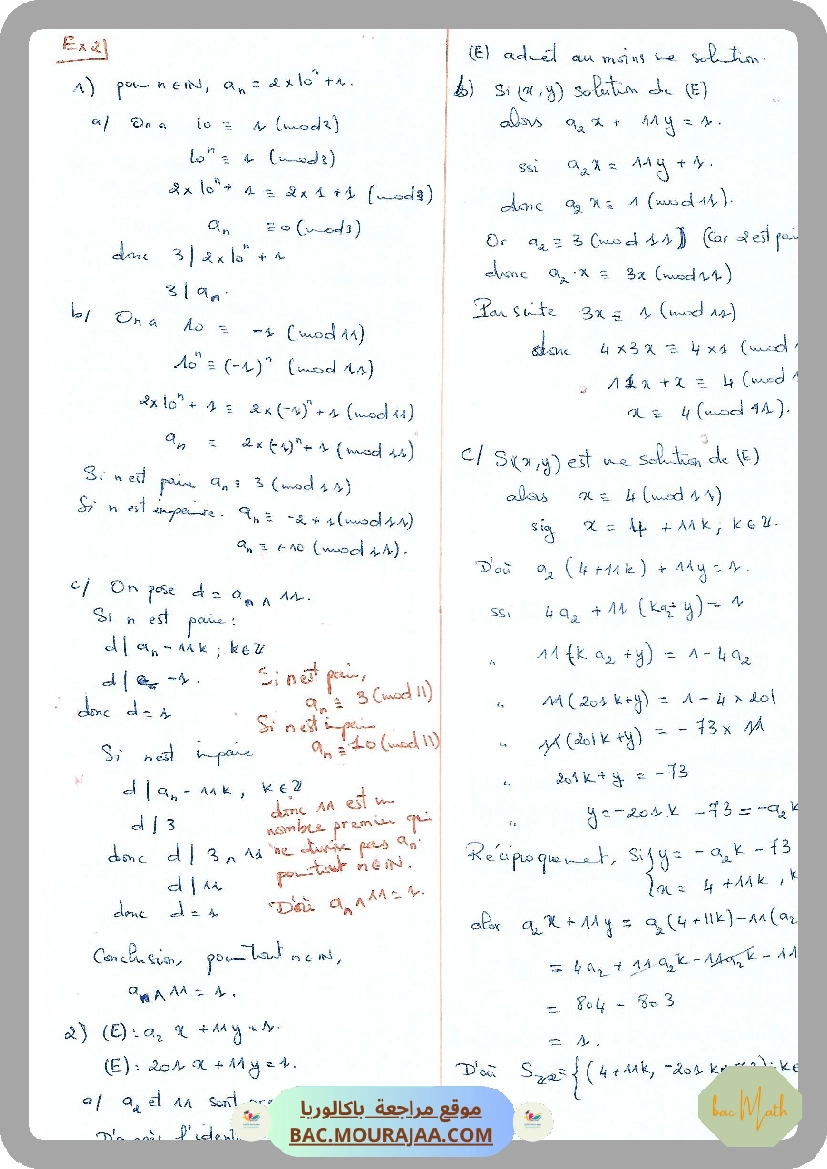 Ex2)
1) pour n∈IN, aₙ = 2×10ⁿ+1.
a/ On a 10 ≡ 1 (mod3)
10ⁿ ≡ 1 (mod3)
2×10ⁿ+1 ≡ 2×1+1 (mod3)
aₙ ≡ 0 (mod3)
donc 3 | 2×10ⁿ+1
3 | aₙ.
b/ On a 10 ≡ -1 (mod 11)
10ⁿ ≡ (-1)ⁿ (mod 11)
2×10ⁿ+1 ≡ 2×(-1)ⁿ+1 (mod 11)
aₙ ≡ 2×(-1)ⁿ+1 (mod 11)
Si n est paire aₙ ≡ 3 (mod 11)
Si n est impaire. aₙ ≡ -2+1 (mod 11)
aₙ ≡ 10 (mod 11).
c/ On pose d = aₙ ∧ 11.
Si n est paire:
d | aₙ - 11k ; k∈ℤ
d | -1.
donc d=1
Si n est impaire
d | aₙ - 11k, k∈ℤ
d | 3
donc d | 3 ∧ 11
d | 11
donc d = 1
Si n est pair,
aₙ ≡ 3 (mod 11)
Si n est impair
aₙ ≡ 10 (mod 11)
donc 11 est un
nombre premier qui
ne divise pas aₙ
pour tout n∈IN.
D'où aₙ ∧ 11 = 1.
Conclusion, pour tout n∈IN,
aₙ ∧ 11 = 1.
2) (E): a₂ x + 11y = 1.
(E): 201 x + 11y = 1.
a/ a₂ et 11 sont
D'après l'
(E) admet au moins une solution.
b) Si (x,y) solution de (E)
alors a₂x + 11y = 1.
ssi a₂x = 11y + 1.
donc a₂x ≡ 1 (mod 11).
Or a₂ ≡ 3 (mod 11) (Car 2 est pair
donc a₂·x ≡ 3x (mod 11)
Par suite 3x ≡ 1 (mod 11)
donc 4×3x ≡ 4×1 (mod
11x + x ≡ 4 (mod
x ≡ 4 (mod 11).
c/ Si (x,y) est une solution de (E)
alors x ≡ 4 (mod 11)
sig x = 4 + 11k ; k∈ℤ.
D'où a₂(4+11k) + 11y = 1.
ssi 4a₂ + 11(ka₂+y) = 1
" 11(k.a₂+y) = 1-4a₂
" 11(201k+y) = 1-4×201
" 11(201k+y) = -73×11
" 201k+y = -73
" y = -201k - 73 = -a₂k
Réciproquement, Si { y = -a₂k - 73
{ x = 4+11k, k
alor a₂x + 11y = a₂(4+11k) - 11(a₂
= 4a₂ + 11a₂k - 11a₂k - 11
= 804 - 803
= 1.
D'où = {(4+11k, -201k
موقع مراجعة باكالوريا
BAC.MOURAJAA.COM
bac Math